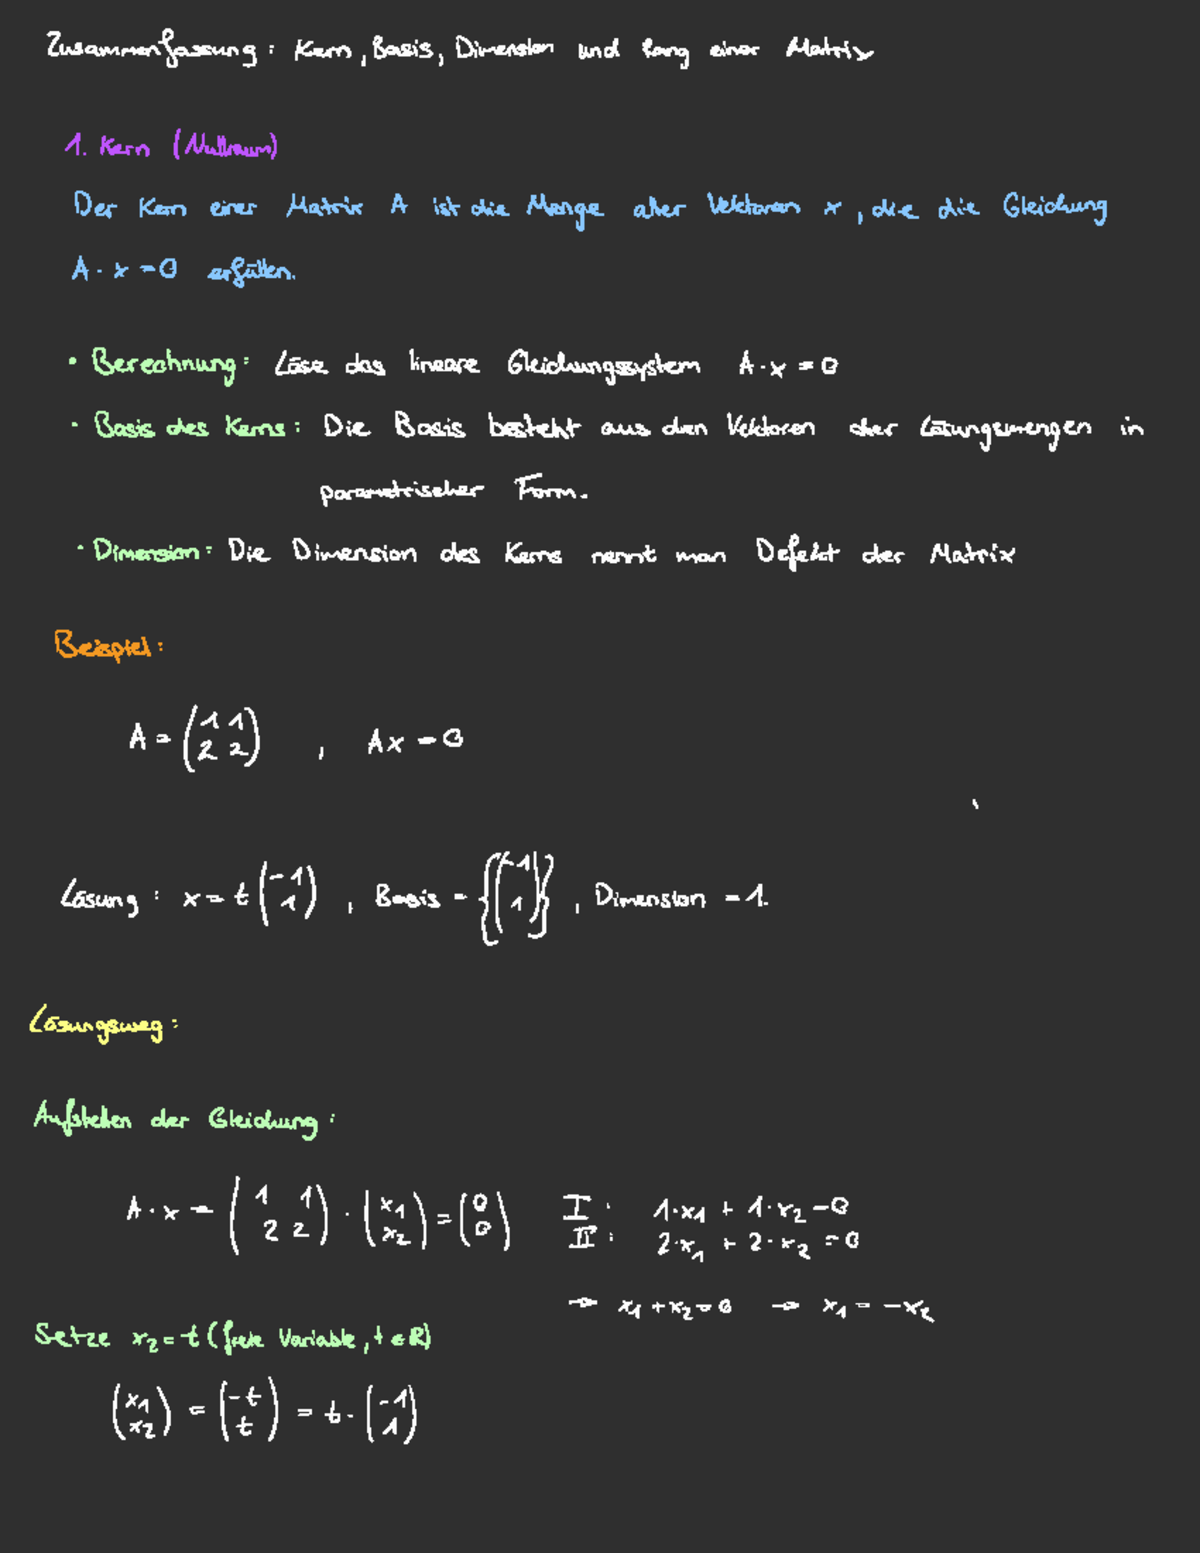 Zusammenfassung: Kern, Basis, Dimension und Rang einer Matrix
1. Kern (Nullraum)
Der Kern einer Matrix A ist die Menge aller Vektoren x, die die Gleichung
A · x = 0 erfüllen.
• Berechnung: Löse das lineare Gleichungssystem A·x = 0
• Basis des Kerns: Die Basis besteht aus den Vektoren der Lösungsmengen in
parametrischer Form.
• Dimension: Die Dimension des Kerns nennt man Defekt der Matrix
Beispiel:
A = (1 1
2 2) , Ax = 0
Lösung: x = t (-1
1) , Basis = {(-1
1)} , Dimension = 1.
Lösungsweg:
Aufstellen der Gleichung:
A · x = (1 1
2 2) · (x₁
x₂) = (0
0) I: 1·x₁ + 1·x₂ = 0
II: 2·x₁ + 2·x₂ = 0
→ x₁ + x₂ = 0 → x₁ = -x₂
Setze x₂ = t (freie Variable, t ∈ R)
(x₁
x₂) = (-t
t) = t · (-1
1)